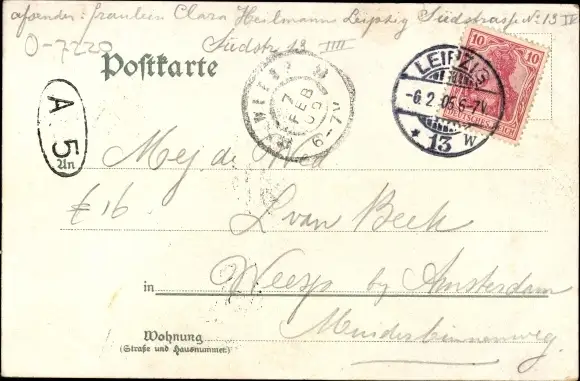 afsender: Fräulein Clara Heilmann Leipzig Südstrasse No 13 IV
0-7220
Südstr 13 IIII
Postkarte
LEIPZIG
-6.2.05.6-7V
* 13 W
10 10
DEUTSCHES REICH
7 FEB 05
6-7V
A 5
An
Mej. de Wed
£ 16
L van Beek
in Weesp by Amsterdam
Wohnung
(Straße und Hausnummer)